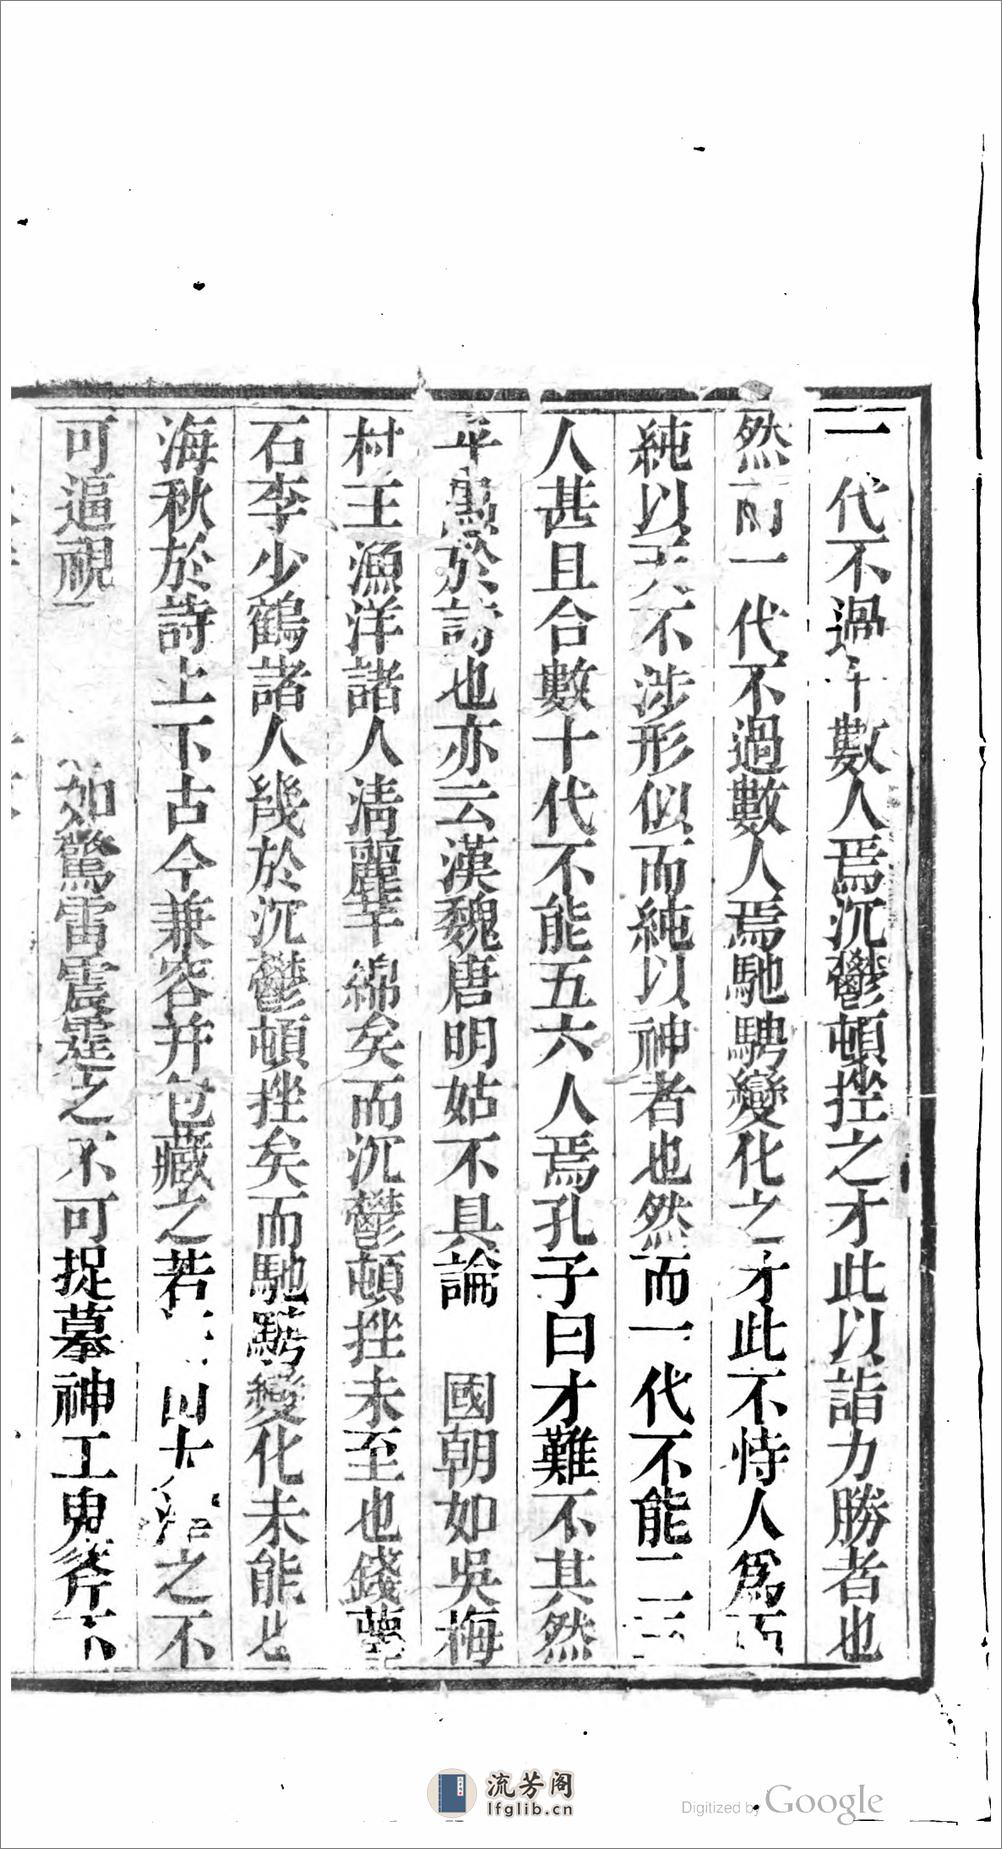 一代不過十數人焉沉鬱頓挫之才此以詣力勝者也
然而一代不過數人焉馳騁變化之才此不恃人爲而
純以天不涉形似而純以神者也然而一代不能二三
人甚且合數十代不能五六人焉孔子曰才難不其然
乎愚於詩也亦云漢魏唐明姑不具論 國朝如吳梅
村王漁洋諸人清麗芊綿矣而沉鬱頓挫未至也錢蘀
石李少鶴諸人幾於沉鬱頓挫矣而馳騁變化未能也
海秋於詩上下古今兼容并包藏之若 之不
可逼視 如驚雷震霆之不可捉摹神工鬼斧不
流芳阁
lfglib.cn
Digitized by Google